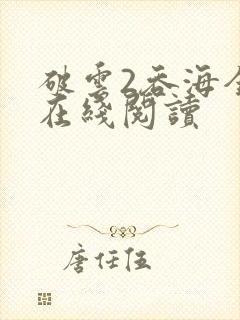 破雲2吞海全
在綫閱讀
唐任伍